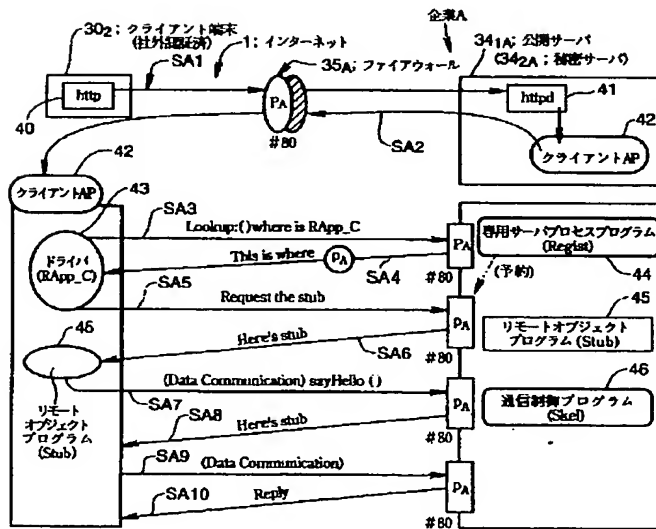 30₂; クライアント端末
(社外認証済)
企業A
1; インターネット
34₁ₐ; 公開サーバ
(34₂ₐ; 秘密サーバ)
SA1
35ₐ; ファイアウォール
http
Pₐ
httpd
41
40
42
SA2
クライアントAP
#80
42
クライアントAP
43
SA3
Lookup:( )where is RApp_C
ドライバ
(RApp_C)
This is where
Pₐ
SA4
Pₐ
専用サーバプロセスプログラム
(Regist)
#80
(予約)
44
SA5
Request the stub
45
Pₐ
リモートオブジェクト
プログラム(Stub)
45
Here's stub
SA6
#80
(Data Communication) sayHello ( )
46
Pₐ
通信制御プログラム
(Skel)
リモート
オブジェクト
プログラム
(Stub)
SA7
SA8
Here's stub
#80
SA9
(Data Communication)
Pₐ
SA10
Reply
#80